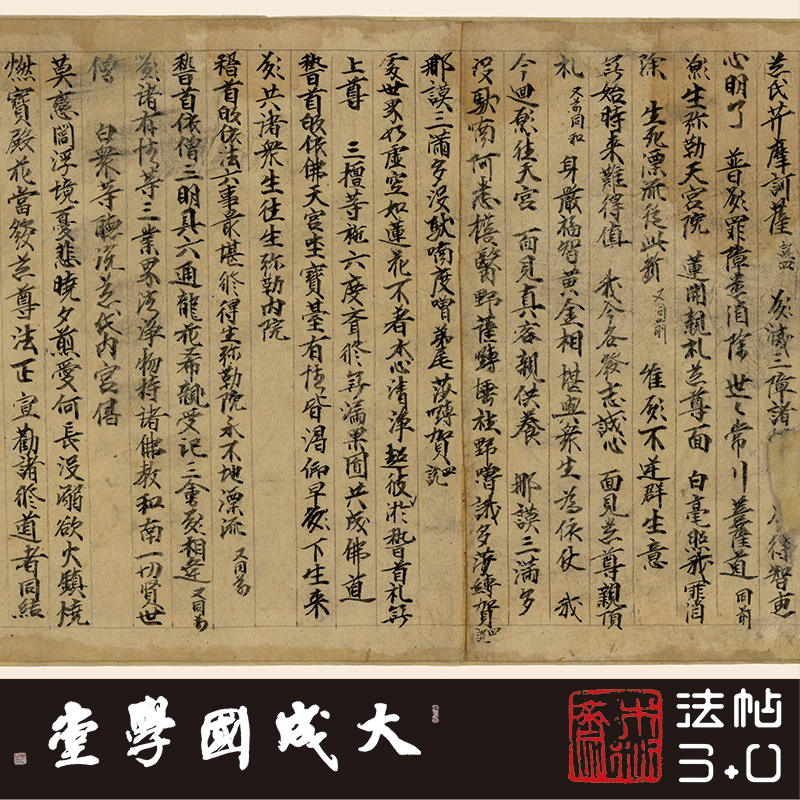 慈氏井摩訶薩 願滅三障諸 得智惠
心明了 普願罪障悉消除 世〻常行菩薩道 同前
願生弥勒天宮院 蓮開親礼慈尊面 白毫照我罪消
除 生死漂流從此斷 又同前 惟願不逆群生意
無始時来難得值 我今各發志誠心 面見慈尊親頂
礼 又前同和 身嚴福智黃金相 堪與衆生為依仗 我
今迴願往天宮 面見真容親供養 那謨三滿多
沒馱喃阿悉檟翳野薩嚩嚩社野嚕誐多莎縛賀 四說
那謨三滿多沒馱喃度嚕弟尾莎嚩賀 四說
處世界如虛空如蓮花不著水心清淨超彼於誓首礼無
上尊 三檀等施六度齊修無漏果圓共成佛道
誓首皈依佛天宮坐寶臺有情皆渴仰早願下生来
願共諸衆生往生弥勒内院
稽首皈依法六事最堪修得生弥勒院永不地漂流 又同前
誓首依僧三明具六通龍花希親受記三會願相逢 又同前
願諸有情等三業界清淨物持諸佛教和南一切賢世
僧 白衆等聽說慈氏内宮偈
莫戀閻浮境憂悲曉夕煎愛何長沒溺欲火鎮燒
燃寶殿花當發慈尊法正宣勸諸修道者同結
大成國學堂
法帖
3.0